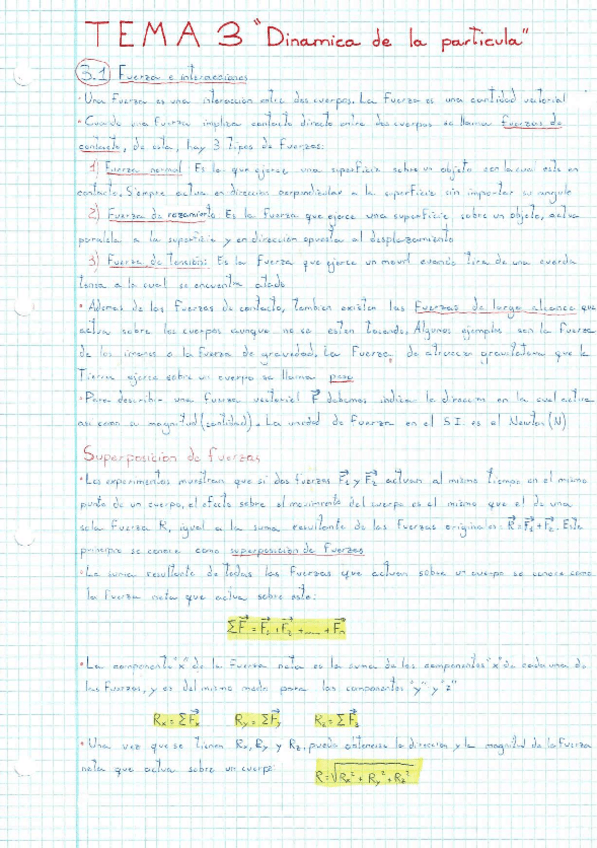 TEMA 3 "Dinamica de la particula"
3.1 Fuerza e interacciones
· Una Fuerza es una interacción entre dos cuerpos. La Fuerza es una cantidad vectorial
· Cuando una Fuerza implica contacto directo entre dos cuerpos se llama fuerzas de
contacto, de esta, hay 3 Tipos de Fuerzas:
1) Fuerza normal: Es la que ejerce una superficie sobre un objeto con la cual esta en
contacto. Siempre actua en dirección perpendicular a la superficie sin importar su angulo
2) Fuerza de rozamiento: Es la Fuerza que ejerce una superficie sobre un objeto, actua
paralela a la superficie y en dirección opuesta al desplazamiento
3) Fuerza de tensión: Es la Fuerza que ejerce un movil cuando tira de una cuerda
tensa a la cual se encuentra atado
· Ademas de las Fuerzas de contacto, tambien existen las Fuerzas de largo alcance que
actua sobre los cuerpos aunque no se esten tocando. Algunos ejemplos son la Fuerza
de los imanes o la Fuerza de gravedad. La Fuerza de atraccion gravitatoria que la
Tierra ejerce sobre un cuerpo se llama peso
· Para describir una fuerza vectorial F⃗ debemos indica la direccion en la cual actua
asi como a magnitud (cantidad). La unidad de Fuerza en el S.I. es el Newton (N)
Superposicion de fuerzas
· Los experimentos muestran que si dos fuerzas F⃗₁ y F⃗₂ actuan al mismo tiempo en el mismo
punto de un cuerpo, el efecto sobre el movimiento del cuerpo es el mismo que el de una
sola Fuerza R, igual a la suma resultante de las Fuerzas originales: R⃗ = F⃗₁ + F⃗₂. Este
principio se conoce como superposición de Fuerzas
· La suma resultante de todas las Fuerzas que actuan sobre un cuerpo se conoce como
la Fuerza neta que actua sobre este:
ΣF⃗ = F⃗₁ + F⃗₂ + ..... + F⃗ₙ
· La componente "x" de la Fuerza neta es la suma de las componentes "x" de cada una de
las Fuerzas, y es del mismo modo para las componentes "y" y "z"
Rₓ = ΣF⃗ₓ R_y = ΣF⃗_y R_z = ΣF⃗_z
· Una vez que se tienen Rₓ, R_y y R_z, puedo obtenerse la direccion y la magnitud de la Fuerza
neta que actua sobre un cuerpo:
R = √(Rₓ² + R_y² + R_z²)